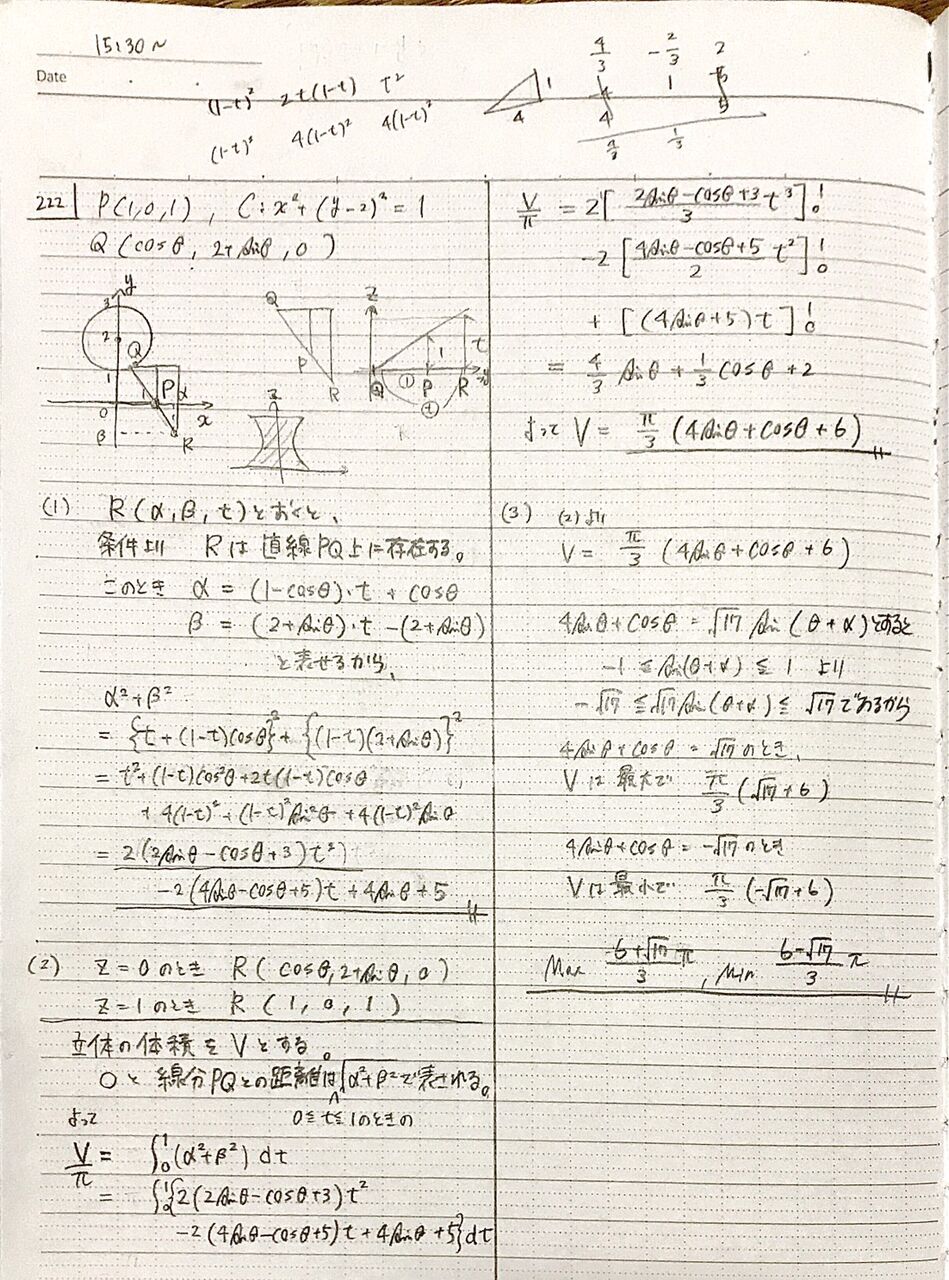 15:30~
Date
(1-t)² 2t(1-t) t²
(1-t)² 4(1-t)² 4(1-t)²
1
4
4/3 -2/3 2
-4 1 5
4 5
4/3 1/3
222 P(1,0,1), C: x²+(y-2)²=1
Q(cosθ, 2+sinθ, 0)
y
3
2
Q
1
P
α
0
x
β
R
Q
P
R
z
1
t
Q ① P R
ⓣ
z
(1) R(α,β,t)とおくと、
条件より Rは直線PQ上に存在する。
このとき α = (1-cosθ)・t + cosθ
β = (2+sinθ)・t -(2+sinθ)
と表せるから、
α²+β²
= {t+(1-t)cosθ}² + {(1-t)(2+sinθ)}²
= t²+(1-t)cos²θ+2t(1-t)cosθ
+ 4(1-t)² + (1-t)²sin²θ + 4(1-t)²sinθ
= 2(2sinθ-cosθ+3)t²
-2(4sinθ-cosθ+5)t + 4sinθ+5
(2) z=0のとき R(cosθ, 2+sinθ, 0)
z=1のとき R(1, 0, 1)
立体の体積をVとする。
Oと線分PQとの距離は√α²+β²で表される。
0≦t≦1のときの
よって
V/π = ∫₀¹(α²+β²)dt
= ∫₀¹{2(2sinθ-cosθ+3)t²
-2(4sinθ-cosθ+5)t+4sinθ+5}dt
V/π = 2[(2sinθ-cosθ+3)/3 t³]₀¹
-2[(4sinθ-cosθ+5)/2 t²]₀¹
+[(4sinθ+5)t]₀¹
= 4/3 sinθ + 1/3 cosθ + 2
よって V = π/3 (4sinθ+cosθ+6)
(3) (2)より
V = π/3 (4sinθ+cosθ+6)
4sinθ+cosθ = √17 sin(θ+α)とすると
-1 ≦ sin(θ+α) ≦ 1 より
-√17 ≦ √17 sin(θ+α) ≦ √17であるから
4sinθ+cosθ = √17のとき、
Vは最大で π/3 (√17+6)
4sinθ+cosθ = -√17のとき
Vは最小で π/3 (-√17+6)
Max (6+√17)/3 π, Min (6-√17)/3 π